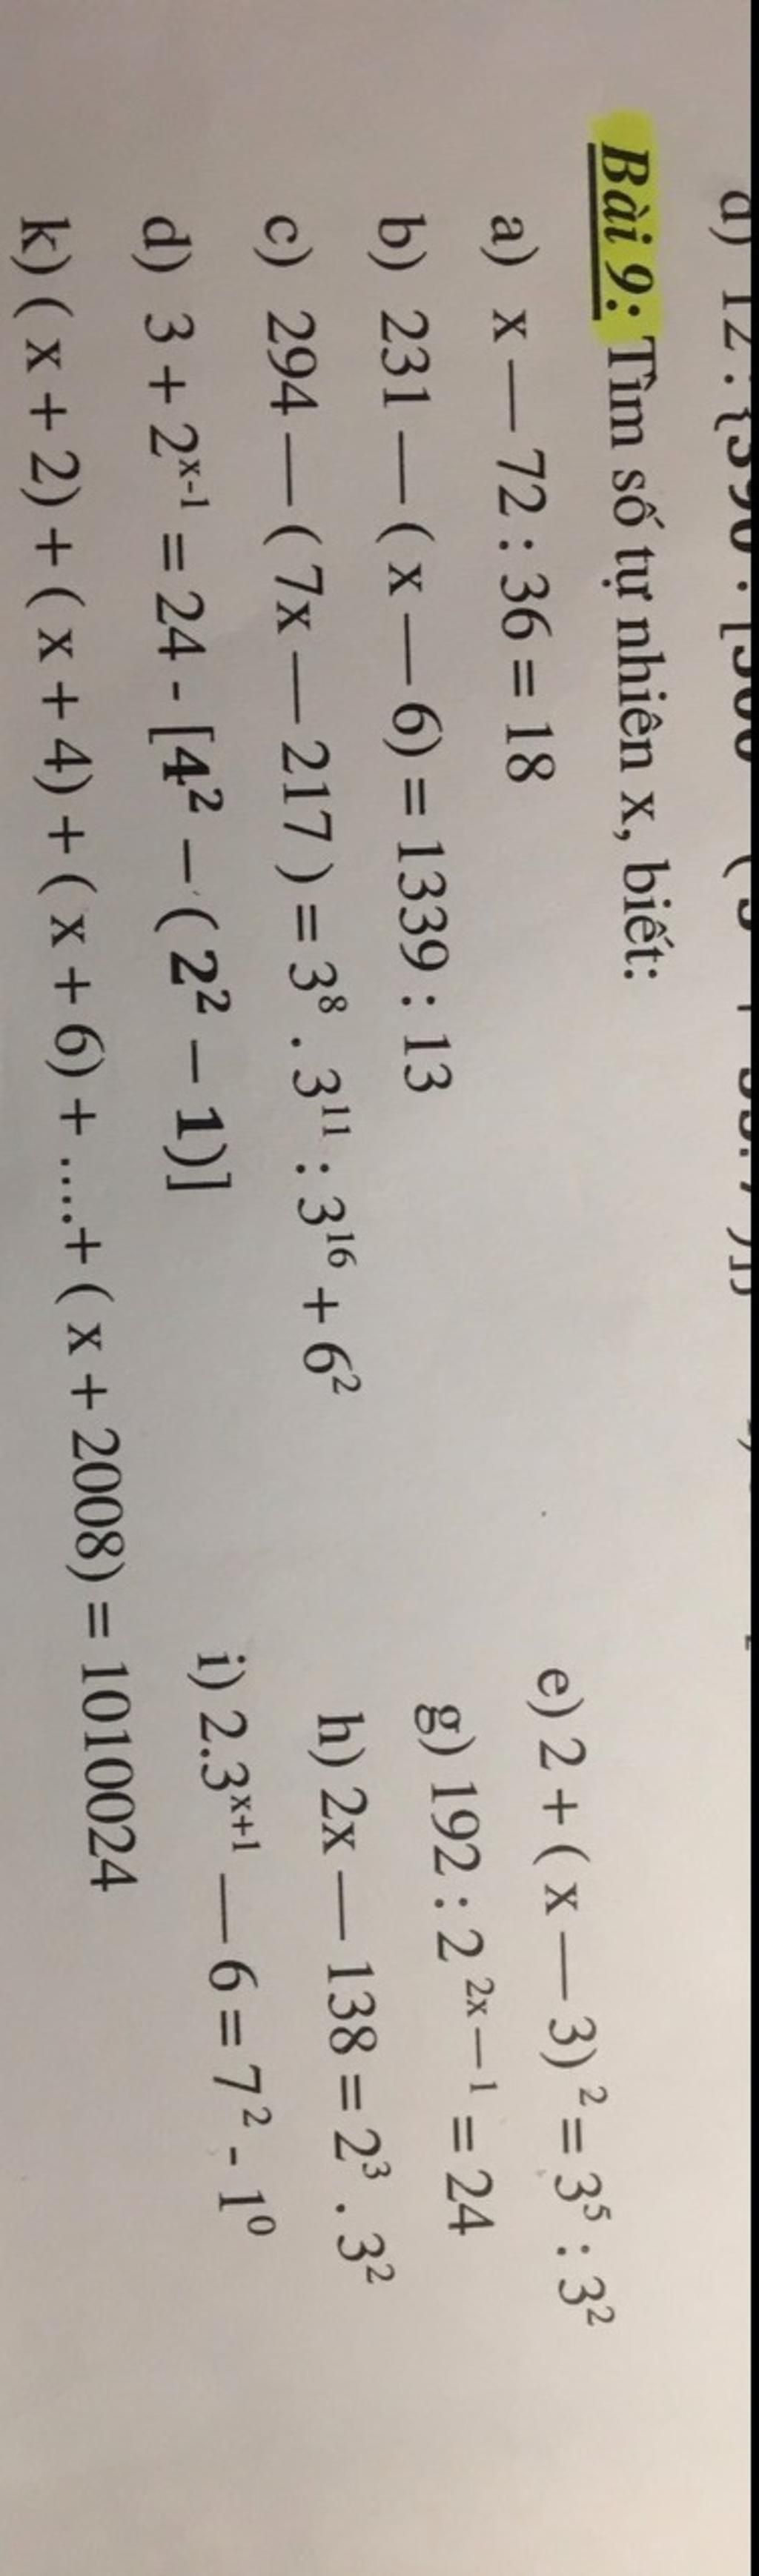 Bài 9: Tìm số tự nhiên x, biết:
a) x — 72 : 36 = 18
e) 2 + ( x — 3)² = 3⁵ : 3²
b) 231 — ( x — 6) = 1339 : 13
g) 192 : 2²ˣ⁻¹ = 24
c) 294 — ( 7x — 217 ) = 3⁸ . 3¹¹ : 3¹⁶ + 6²
h) 2x — 138 = 2³ . 3²
d) 3 + 2ˣ⁻¹ = 24 - [4² – ( 2² – 1)]
i) 2.3ˣ⁺¹ — 6 = 7² - 1⁰
k) ( x + 2) + ( x + 4) + ( x + 6) + ....+ ( x + 2008) = 1010024